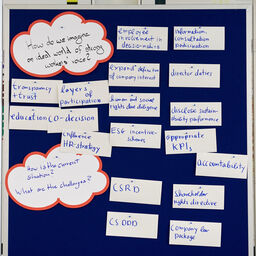 How do we imagine
an ideal world of strong
workers' voice?
employee
involvement in
decisionmaking
information
consultation
participation
expand definition
of company interest
director duties
transparency
+ trust
layers of
participation
human and social
rights due diligence
disclose sustain-
ability performance
education
CO-decision
influence
HR-strategy
ESG incentive-
schemes
appropriate
KPIs
accountability
How is the current
situation?
What are the challenges?
CSRD
shareholder
rights directive
CSDDD
Company law
package